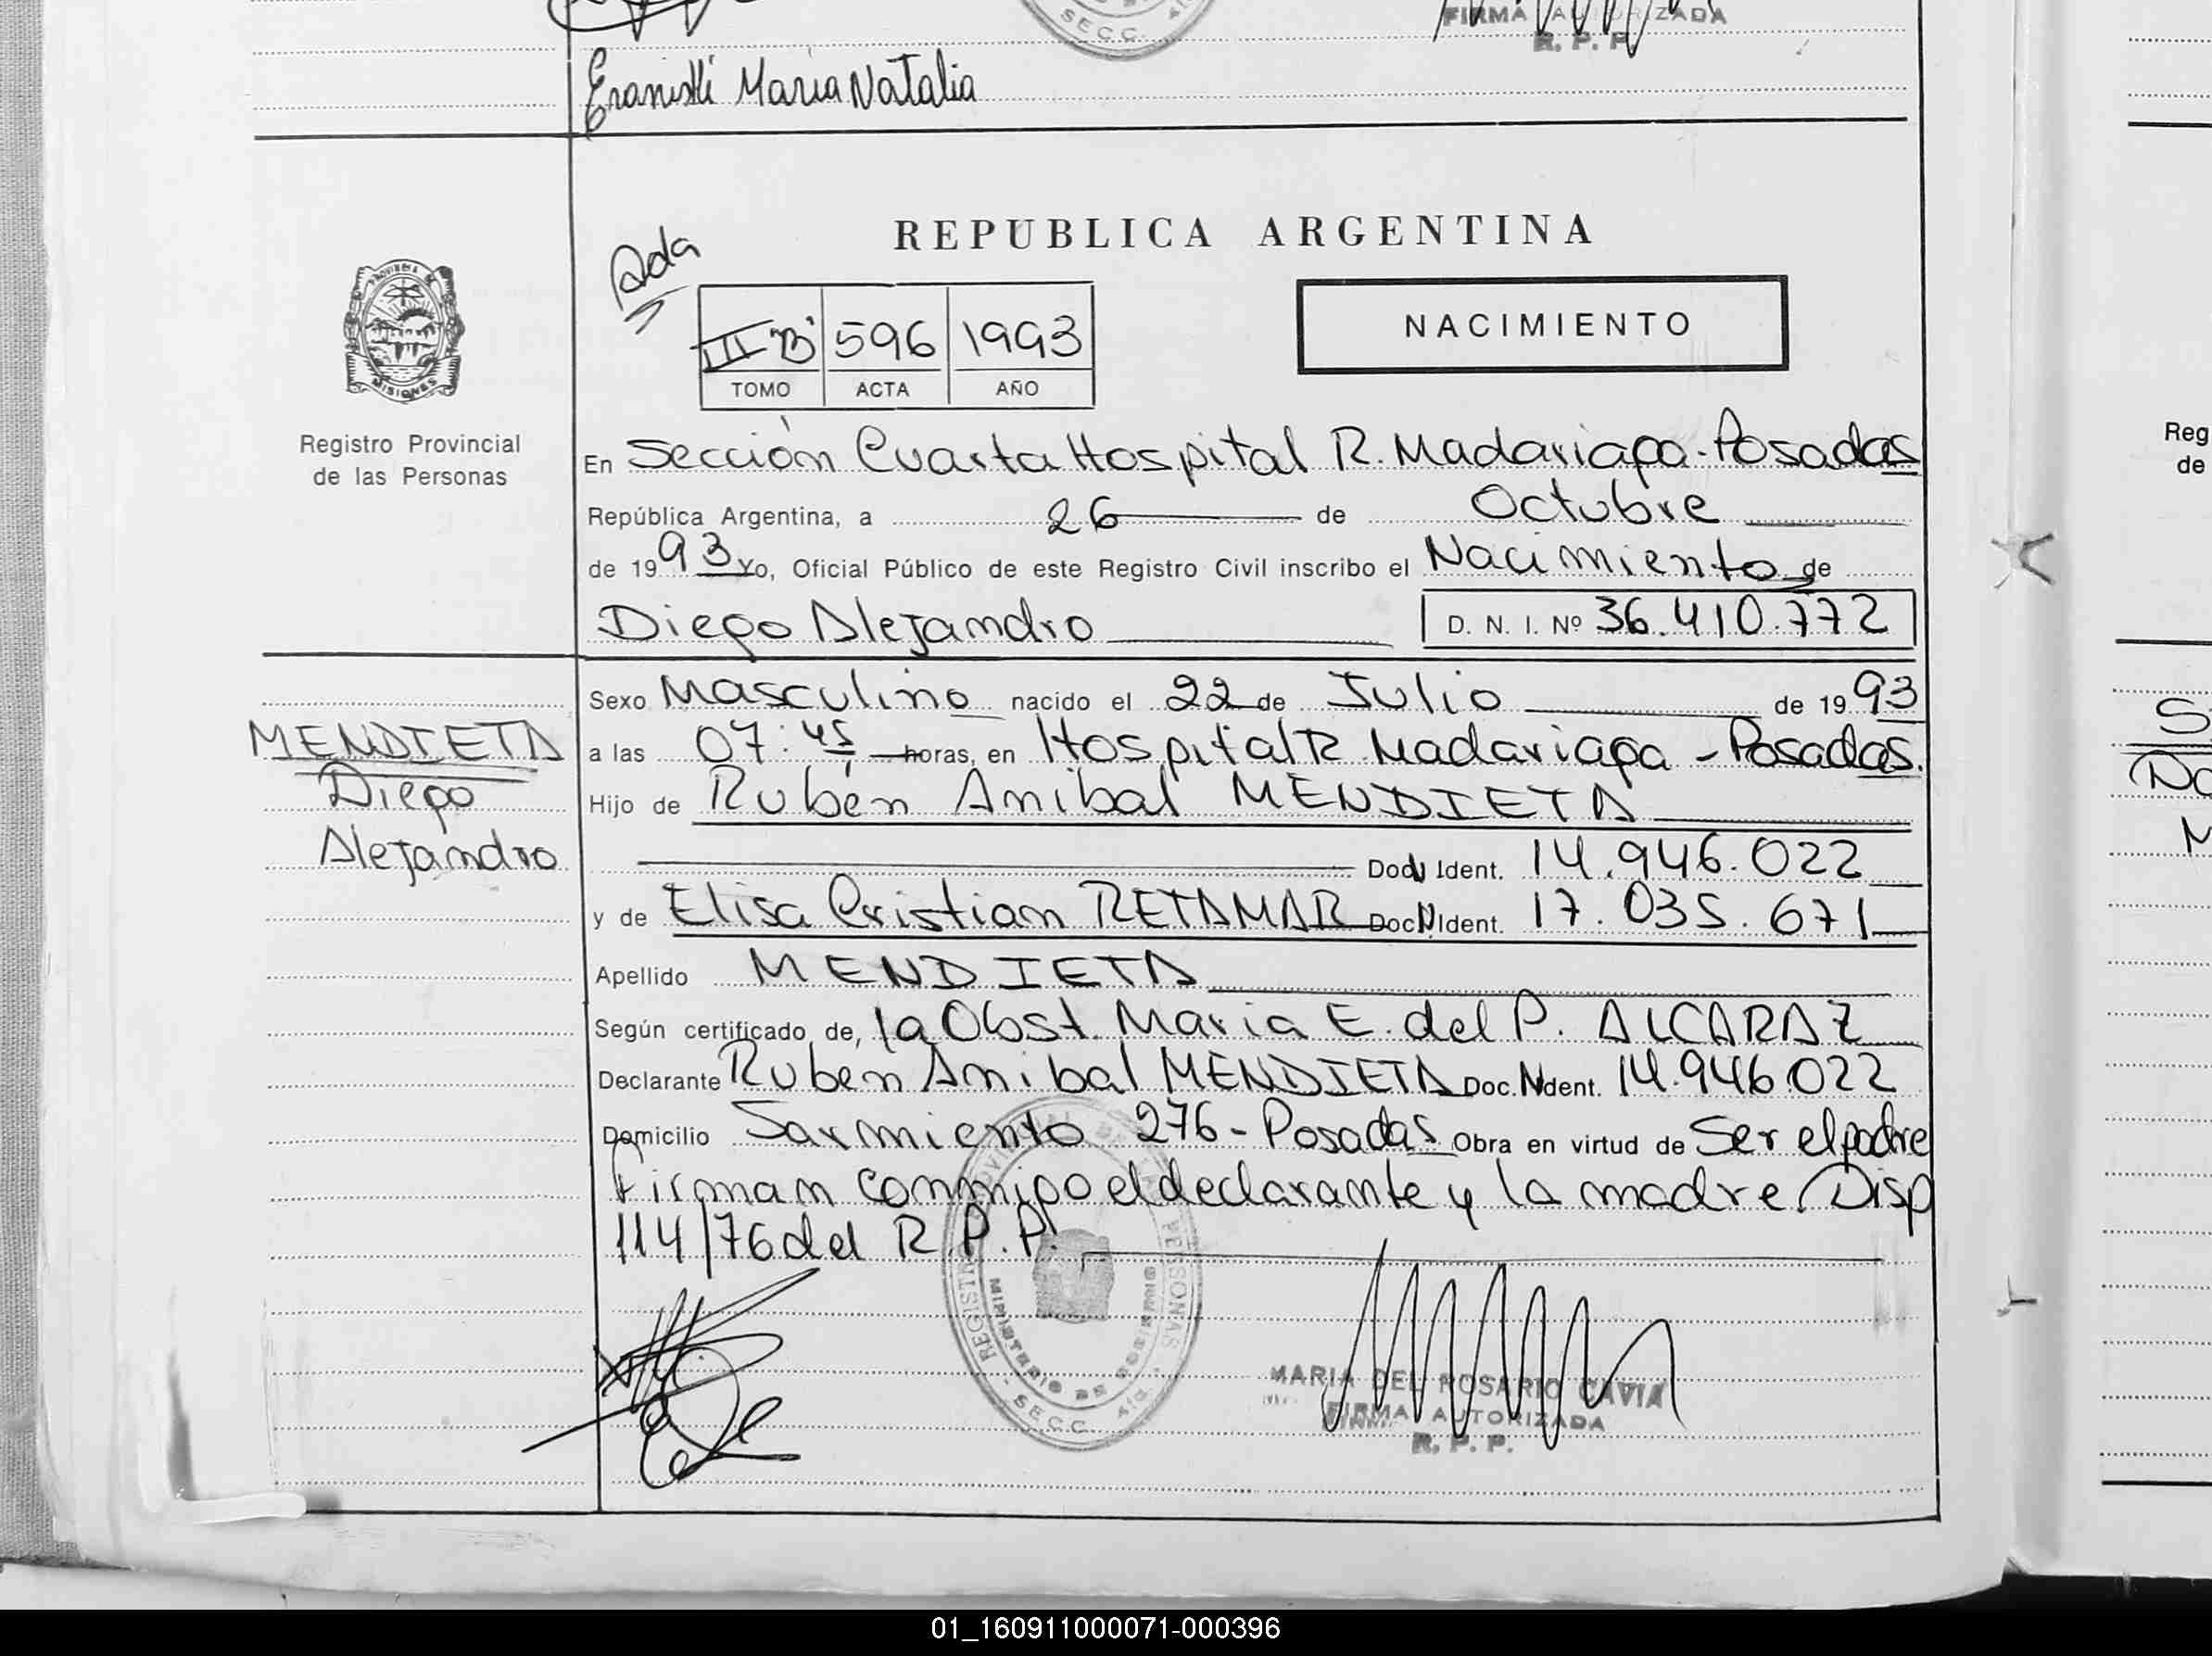 SECC.
FIRMA AUTORIZADA
R. P. P.
Maria Natalia
REPUBLICA ARGENTINA
Ada
NACIMIENTO
III "B" 596 1993
TOMO ACTA AÑO
PROVINCIA DE
MISIONES
Registro Provincial
de las Personas
En Sección Cuarta Hospital R. Madariaga - Posadas
República Argentina, a 26 de Octubre
de 1993 Yo, Oficial Público de este Registro Civil inscribo el Nacimiento de
Diego Alejandro D. N. I. Nº 36.410.772
Sexo Masculino nacido el 22 de Julio de 1993
MENDIETA
Diego
Alejandro
a las 07:45 horas, en Hospital R. Madariaga - Posadas.
Hijo de Rubén Anibal MENDIETA
Doc. Ident. 14.946.022
y de Elisa Cristian RETAMAR Doc. N. Ident. 17.035.671
Apellido MENDIETA
Según certificado de, la Obst. Maria E. del P. ALCARAZ
Declarante Ruben Anibal MENDIETA Doc. N dent. 14.946.022
Domicilio Sarmiento 276 - Posadas Obra en virtud de Ser el padre
Firman conmigo el declarante y la madre. Disp
114/76 del R. P. P.
REGISTRO PROVINCIAL DE LAS PERSONAS
MINISTERIO DE GOBIERNO
SECC. 4ta
MARIA DEL ROSARIO CAVIA
FIRMA AUTORIZADA
R. P. P.
Reg
de
S
Do
M
01_160911000071-000396